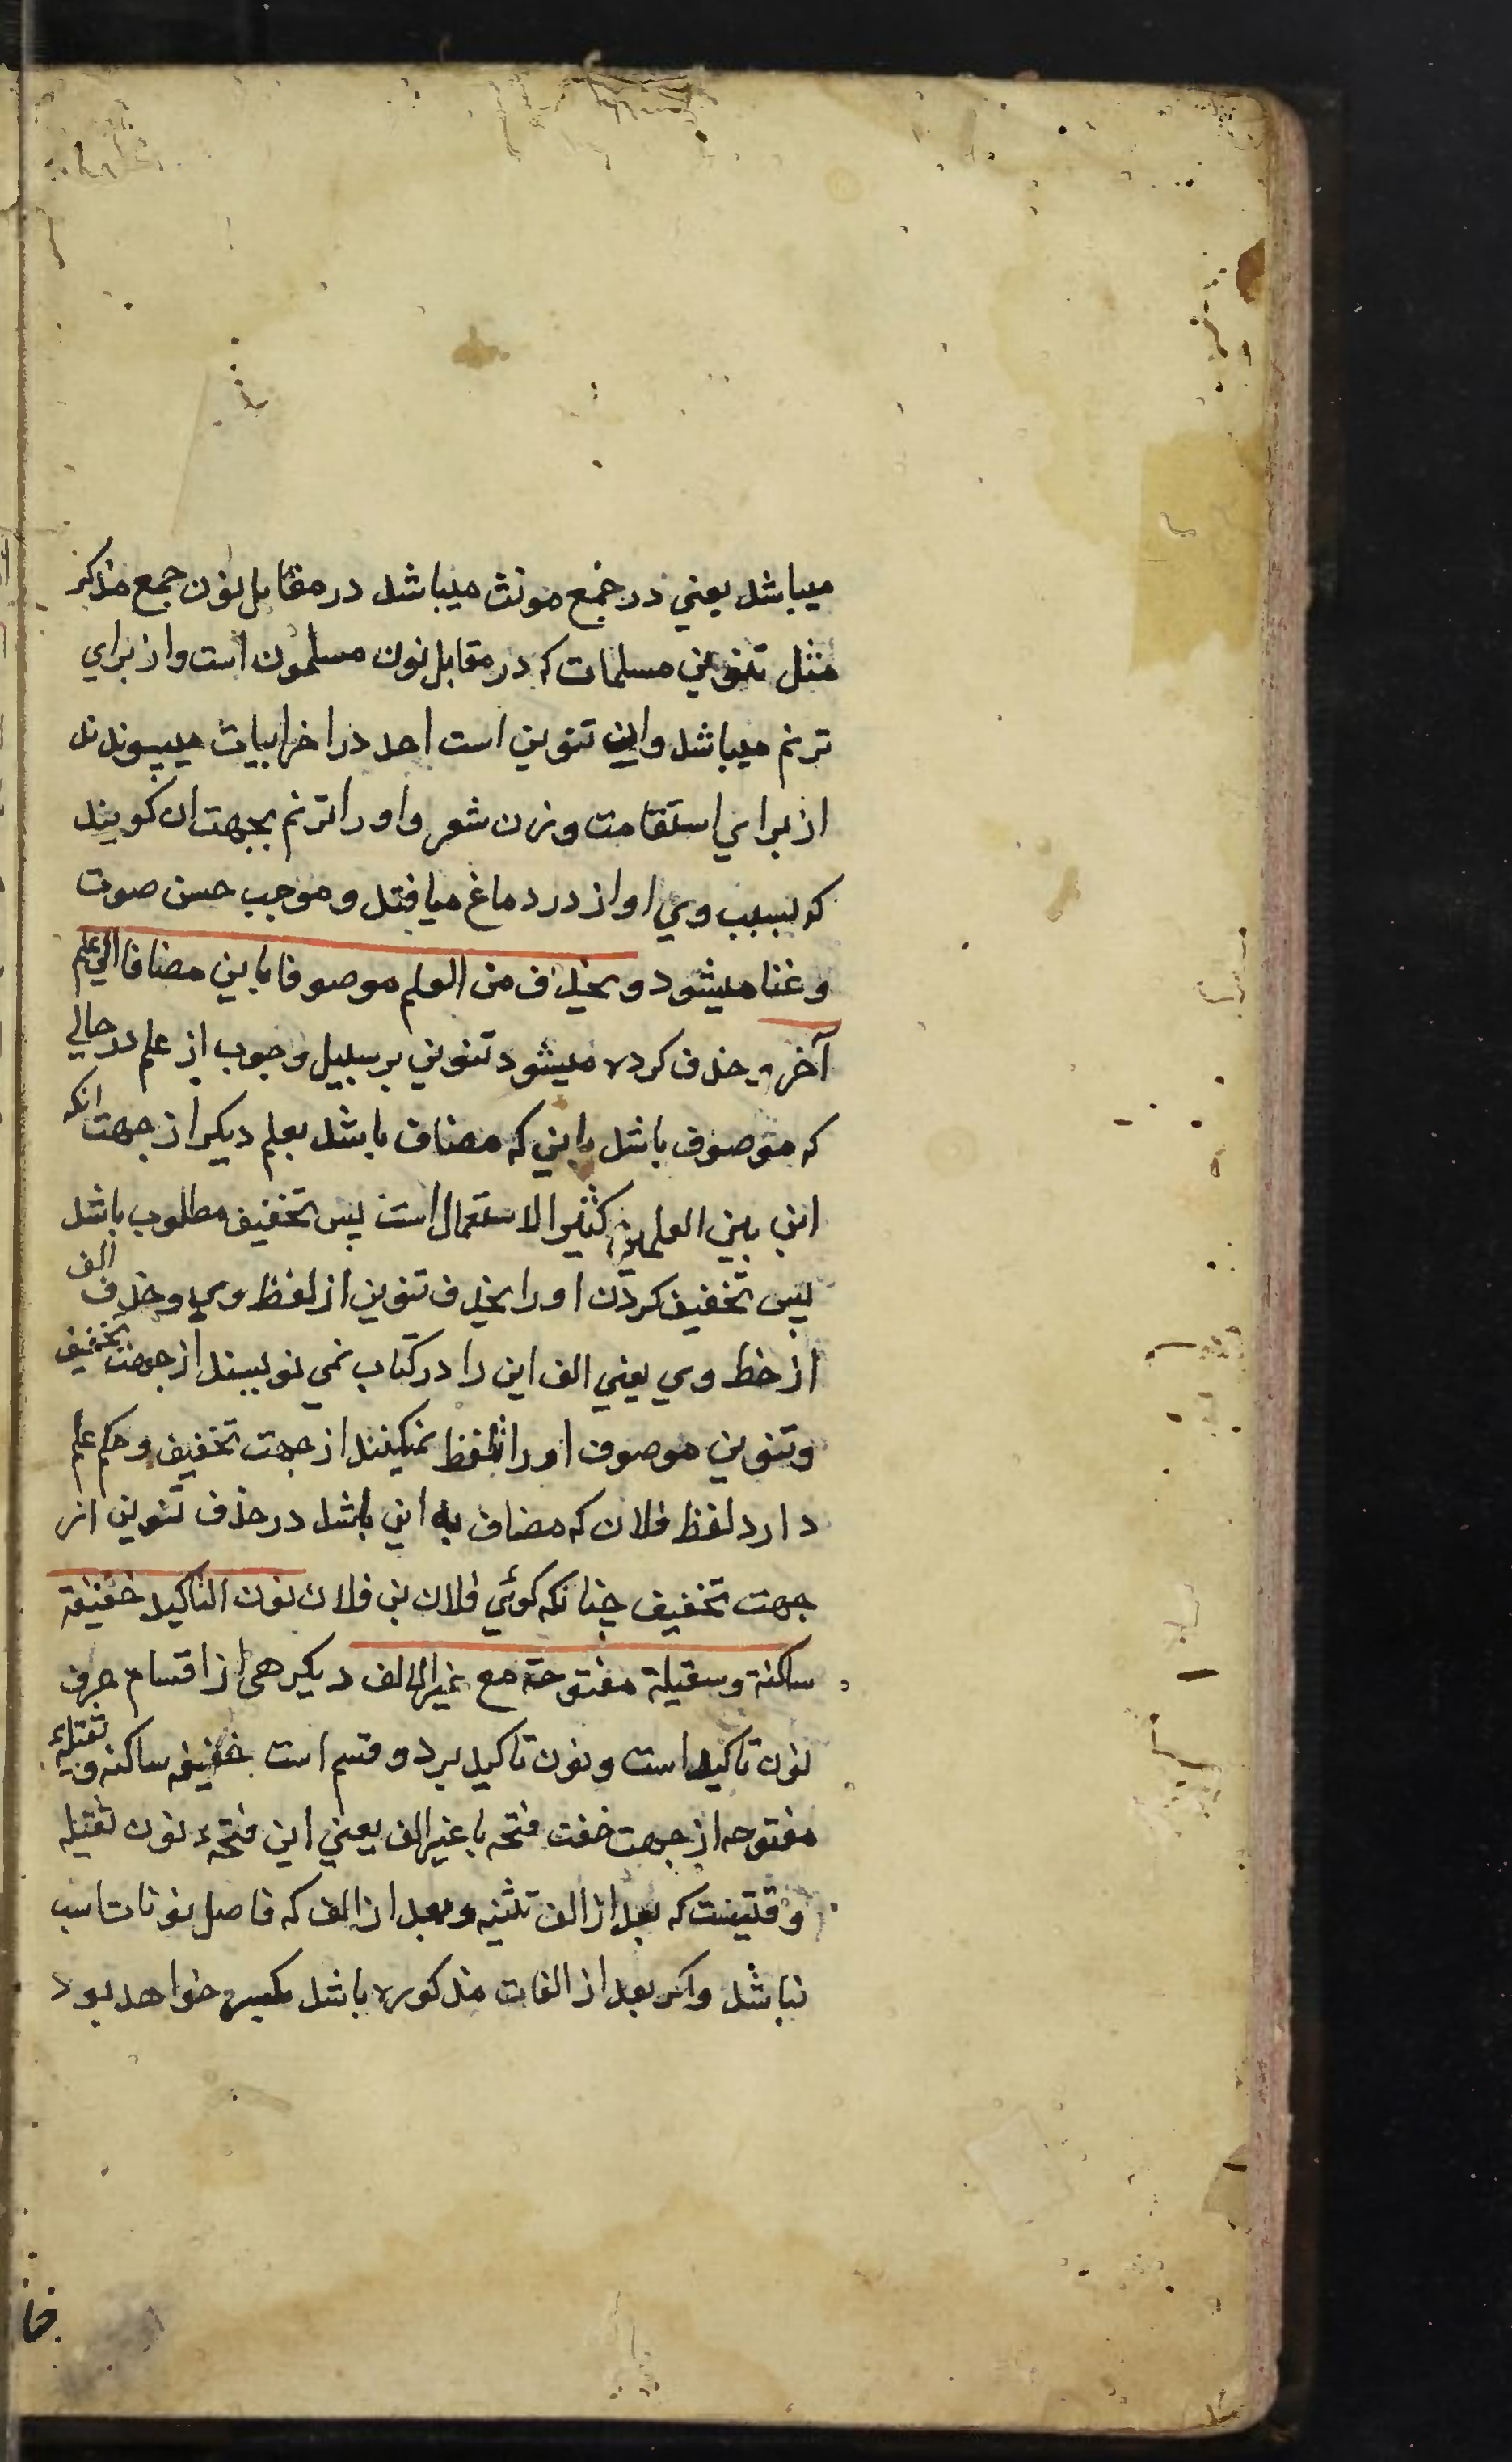 میباشد یعنی در جمع مونث میباشد در مقابل نون جمع مذکر
مثل تنوین مسلمات که در مقابل نون مسلمون است و از برای
ترنم میباشد واین تنوین است احد در اخر ابیات میپیوندند
از برای استقامت وزن شعر و او را ترنم بجهت ان کویند
که بسبب وی اواز در دماغ میافتد و موجب حسن صوت
و غنا میشود ویحذف من العلم موصوفا بابن مضافا الی علم
آخر وحذف کرده میشود تنوین بر سبیل وجوب از علم در حالی
که موصوف باشد بابنی که مضاف باشد بعلم دیکر از جهت انکه
ابن بین العلمین کثیر الاستعمال است پس تخفیف مطلوب باشد
پس تخفیف کردن او را بحذف تنوین از لفظ وی و حذف الف
از خط وی یعنی الف ابن را در کتاب نمی نویسند از جهت تخفیف
وتنوین موصوف او را تلفظ نمیکنند از جهت تخفیف و حکم علم
دارد لفظ فلان که مضاف به ابن باشد در حذف تنوین از
جهت تخفیف چنانکه کوئی فلان بن فلان نون التاکید خفیفة
ساکنة وسقیلة مفتوحة مع غیر الالف دیکر هی از اقسام حرف
نون تاکید است ونون تاکید بر دو قسم است خفیفه ساکنه و ثقیلهٔ
مفتوحه از جهت خفت فتحه با غیر الف یعنی این فتحهٔ نون ثقیله
وقتیست که بعد از الف تثنیه وبعد از الف که فاصل نونات است
نباشد واکر بعد از الفات مذکوره باشد مکسور خواهد بود